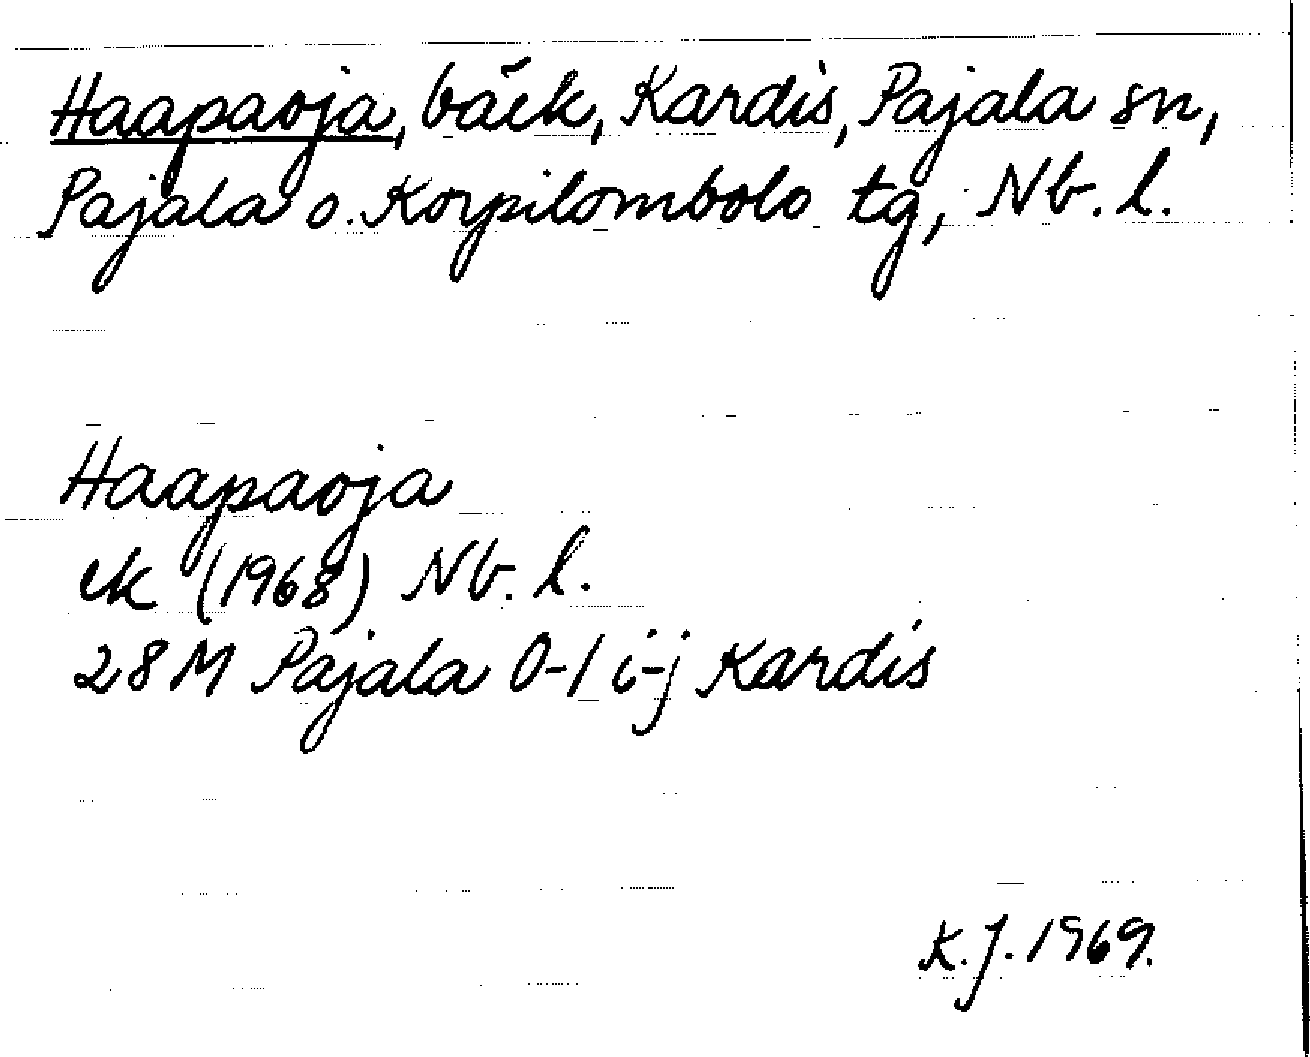 Haapaoja, bäck, Kardis, Pajala sn,
Pajala o. Korpilombolo tg, Nb. l.
Haapaoja
ek (1968) Nb. l.
28 M Pajala 0-1 i-j Kardis
K.J. 1969.